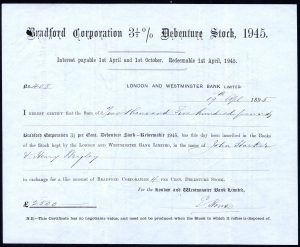 Bradford Corporation 3½% Debenture Stock, 1945.
Interest payable 1st April and 1st October. Redeemable 1st April, 1945.
LONDON AND WESTMINSTER BANK LIMITED
I HEREBY CERTIFY that the Sum of Two thousand Five hundred pounds
Bradford Corporation 3½ per Cent. Debenture Stock—Redeemable 1945, has this day been inscribed in the Books
of the Stock kept by the LONDON AND WESTMINSTER BANK LIMITED, in the name of John
& Henry
in exchange for a like amount of BRADFORD CORPORATION per CENT. DEBENTURE STOCK.
For the London and Westminster Bank Limited,
£2500
N.B.—This Certificate has no negotiable value, and need not be produced when the Stock to which it refers is disposed of.